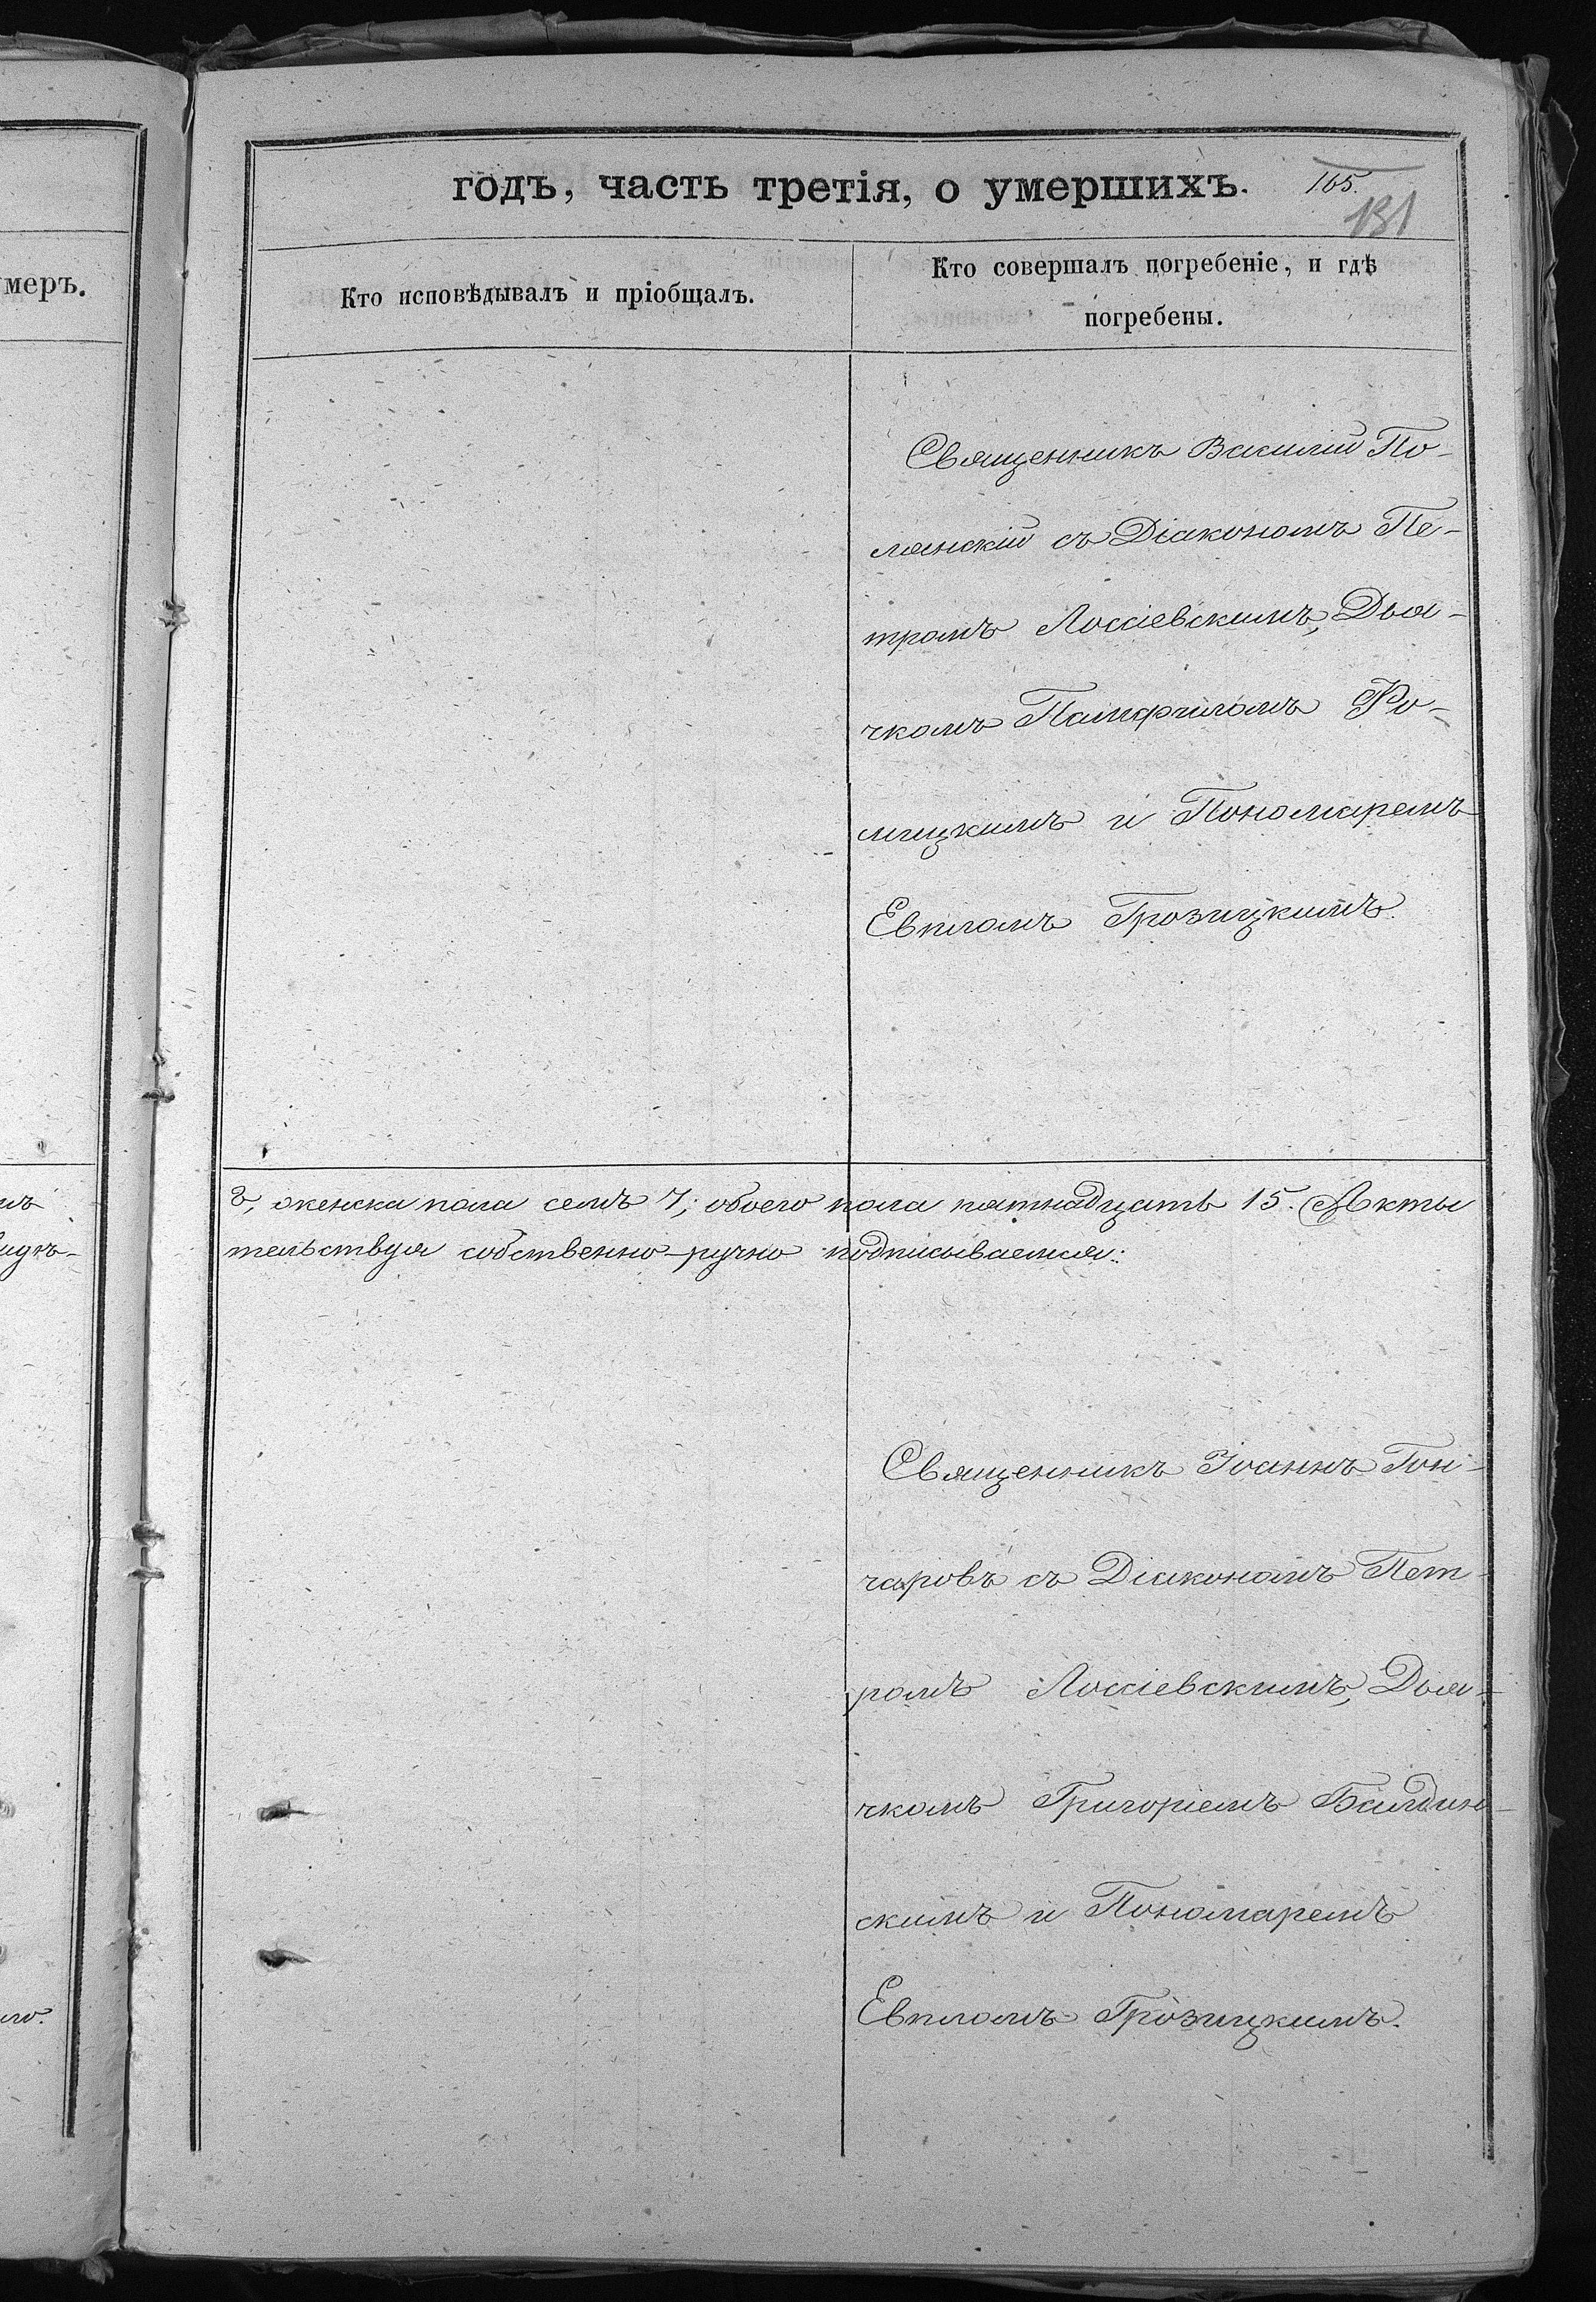 годъ, часть третія, о умершихъ. 165.
131
меръ.
Кто исповѣдывалъ и пріобщалъ.
Кто совершалъ погребеніе, и гдѣ
погребены.
Священникъ Василій По-
лянскій съ Діакономъ Пе-
тромъ Лоссіевскимъ, Дья-
чкомъ Памфиломъ Ро-
мицкимъ и Пономаремъ
Евпломъ Грозицкимъ.
женска пола семь 7; обоего пола пятнадцать 15. Акты
тельствуя собственно-ручно подписываемся:
Священникъ Іоаннъ Гон-
чаровъ съ Діакономъ Пет-
ромъ Лоссіевскимъ, Дья-
чкомъ Григоріемъ
скимъ и Пономаремъ
Евпломъ Грозицкимъ.